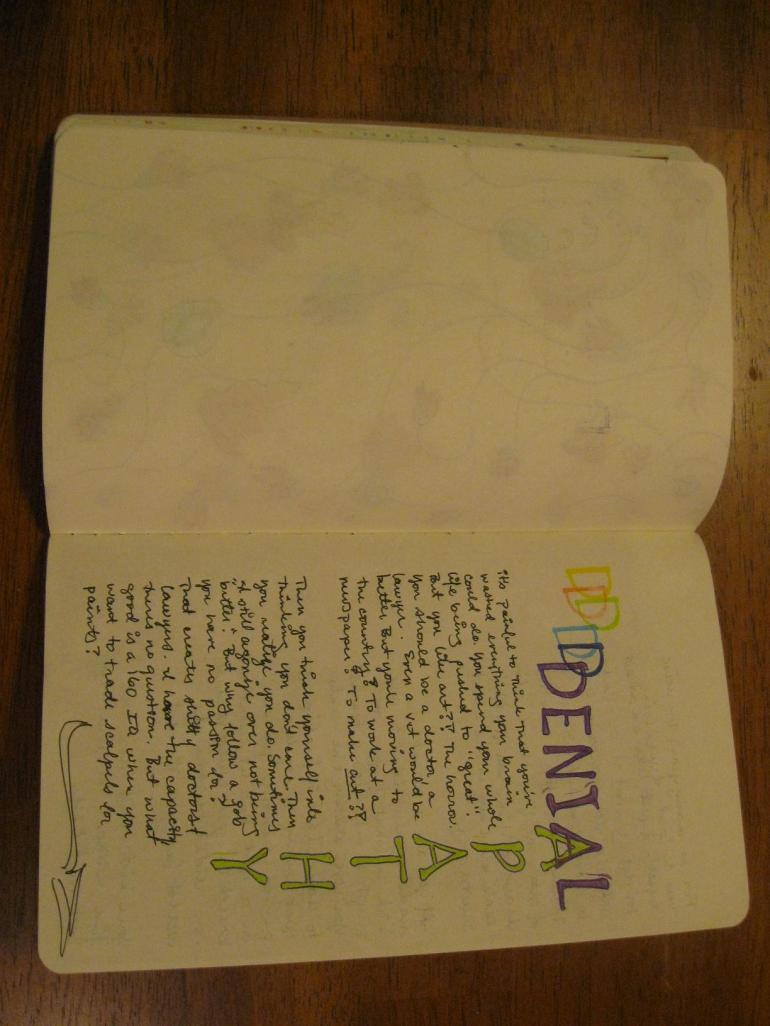 DDDDENIAL
APATHY
its painful to think that you've
wasted everything your brain
could do. You spend your whole
life being pushed to "great".
But you like art?!? The horror.
You should be a doctor, a
lawyer. Even a vet would be
better. But you're moving to
the country? To work at a
newspaper? To make art?!?
Then you think yourself into
thinking you don't care. Then
you realize you do. Sometimes
"I still agonize over not being
better". But why follow a job
you have no passion for?
That creates shitty doctors &
lawyers. I have the capacity
theres no question. But what
good is a 160 IQ when you
want to trade scalpels for
paints?